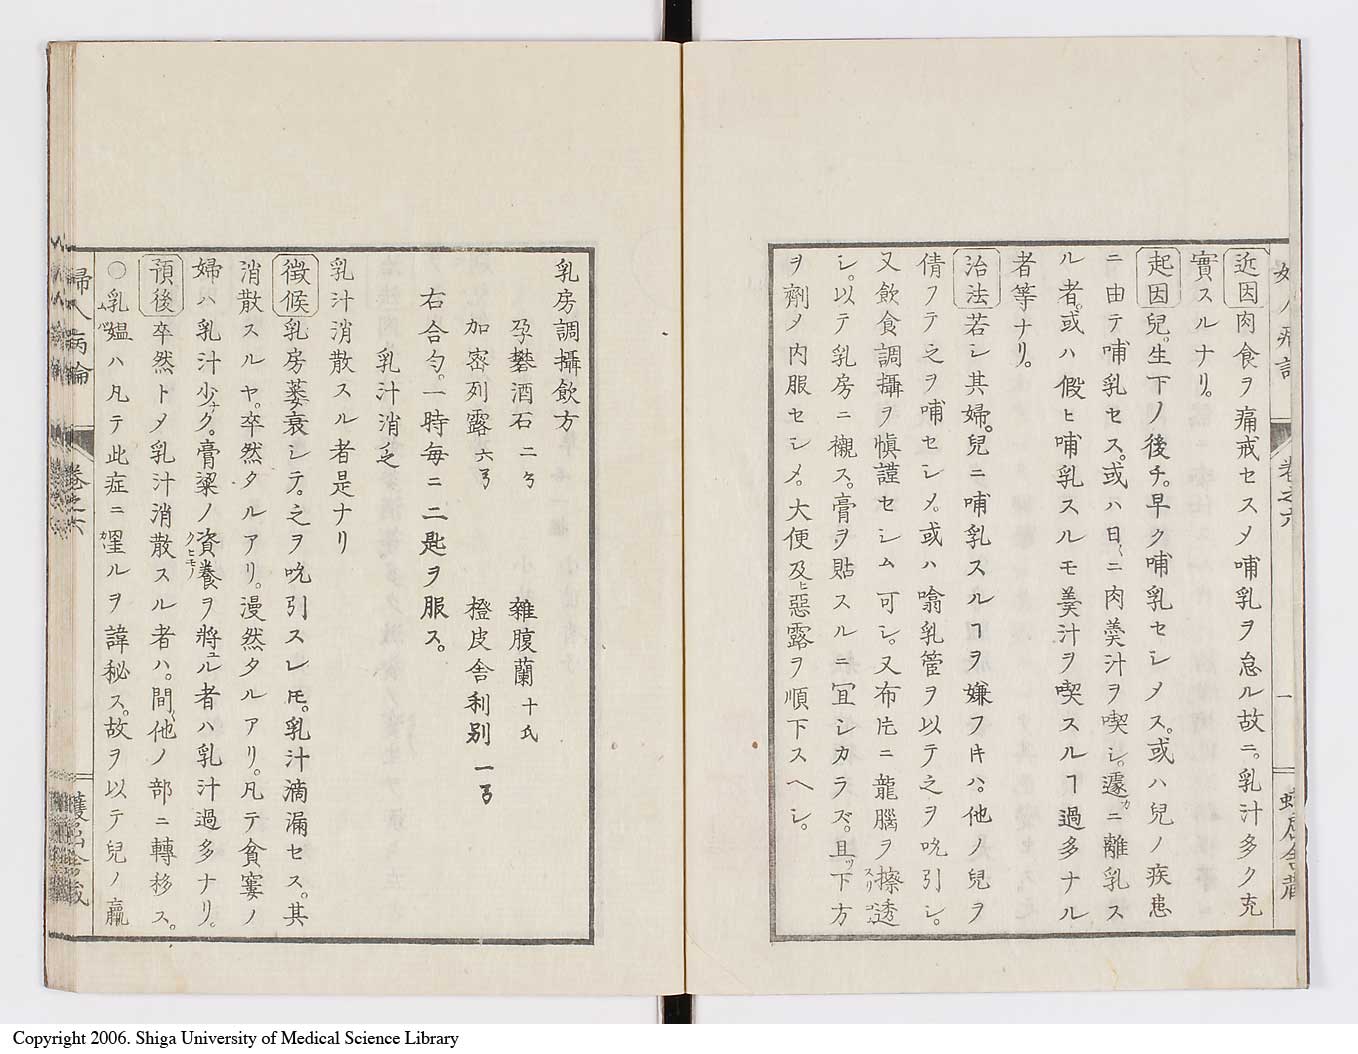 近因肉食ヲ痛戒セスメ哺乳ヲ怠ル故ニ。乳汁多ク充
實スルナリ。
起因兒。生下ノ後チ。早ク哺乳セシメス。或ハ兒ノ疾患
ニ由テ哺乳セス。或ハ日〻ニ肉羹汁ヲ喫シ。遽カニ離乳ス
ル者。或ハ假ヒ哺乳スルモ羹汁ヲ喫スルヿ過多ナル
者等ナリ。
治法若シ其婦。兒ニ哺乳スルヿヲ嫌フキハ。他ノ兒ヲ
倩フテ之ヲ哺セシメ。或ハ噏乳管ヲ以テ之ヲ吮引シ。
又飲食調攝ヲ愼謹セシム可シ。又布片ニ龍腦ヲ擦透スリコミ
シ。以テ乳房ニ襯ス。膏ヲ貼スルニ冝シカラズ。且ツ下方
ヲ劑メ内服セシメ。大便及ヒ惡露ヲ順下スヘシ。
卷之六
一
乳房調攝飲方
孕礬酒石 二ケ 雜腹蘭 十氏
加密列露 六弓 橙皮舎利別 一弓
右合匀。一時毎ニ二匙ヲ服ス。
乳汁消乏
乳汁消散スル者是ナリ
徴候乳房萎衰シテ。之ヲ吮引スレ𪜈。乳汁滴漏セス。其
消散スルヤ。卒然タルアリ。漫然タルアリ。凡テ貧窶ノ
婦ハ乳汁少ナク。膏粱ノ資養クヒモノヲ將ユル者ハ乳汁過多ナリ。
預後卒然トメ乳汁消散スル者ハ。間〻他ノ部ニ轉移ス。
○乳媼ハ凡テ此症ニ罹ルヲ諱秘ス。故ヲ以テ兒ノ羸
婦人病論
卷之六